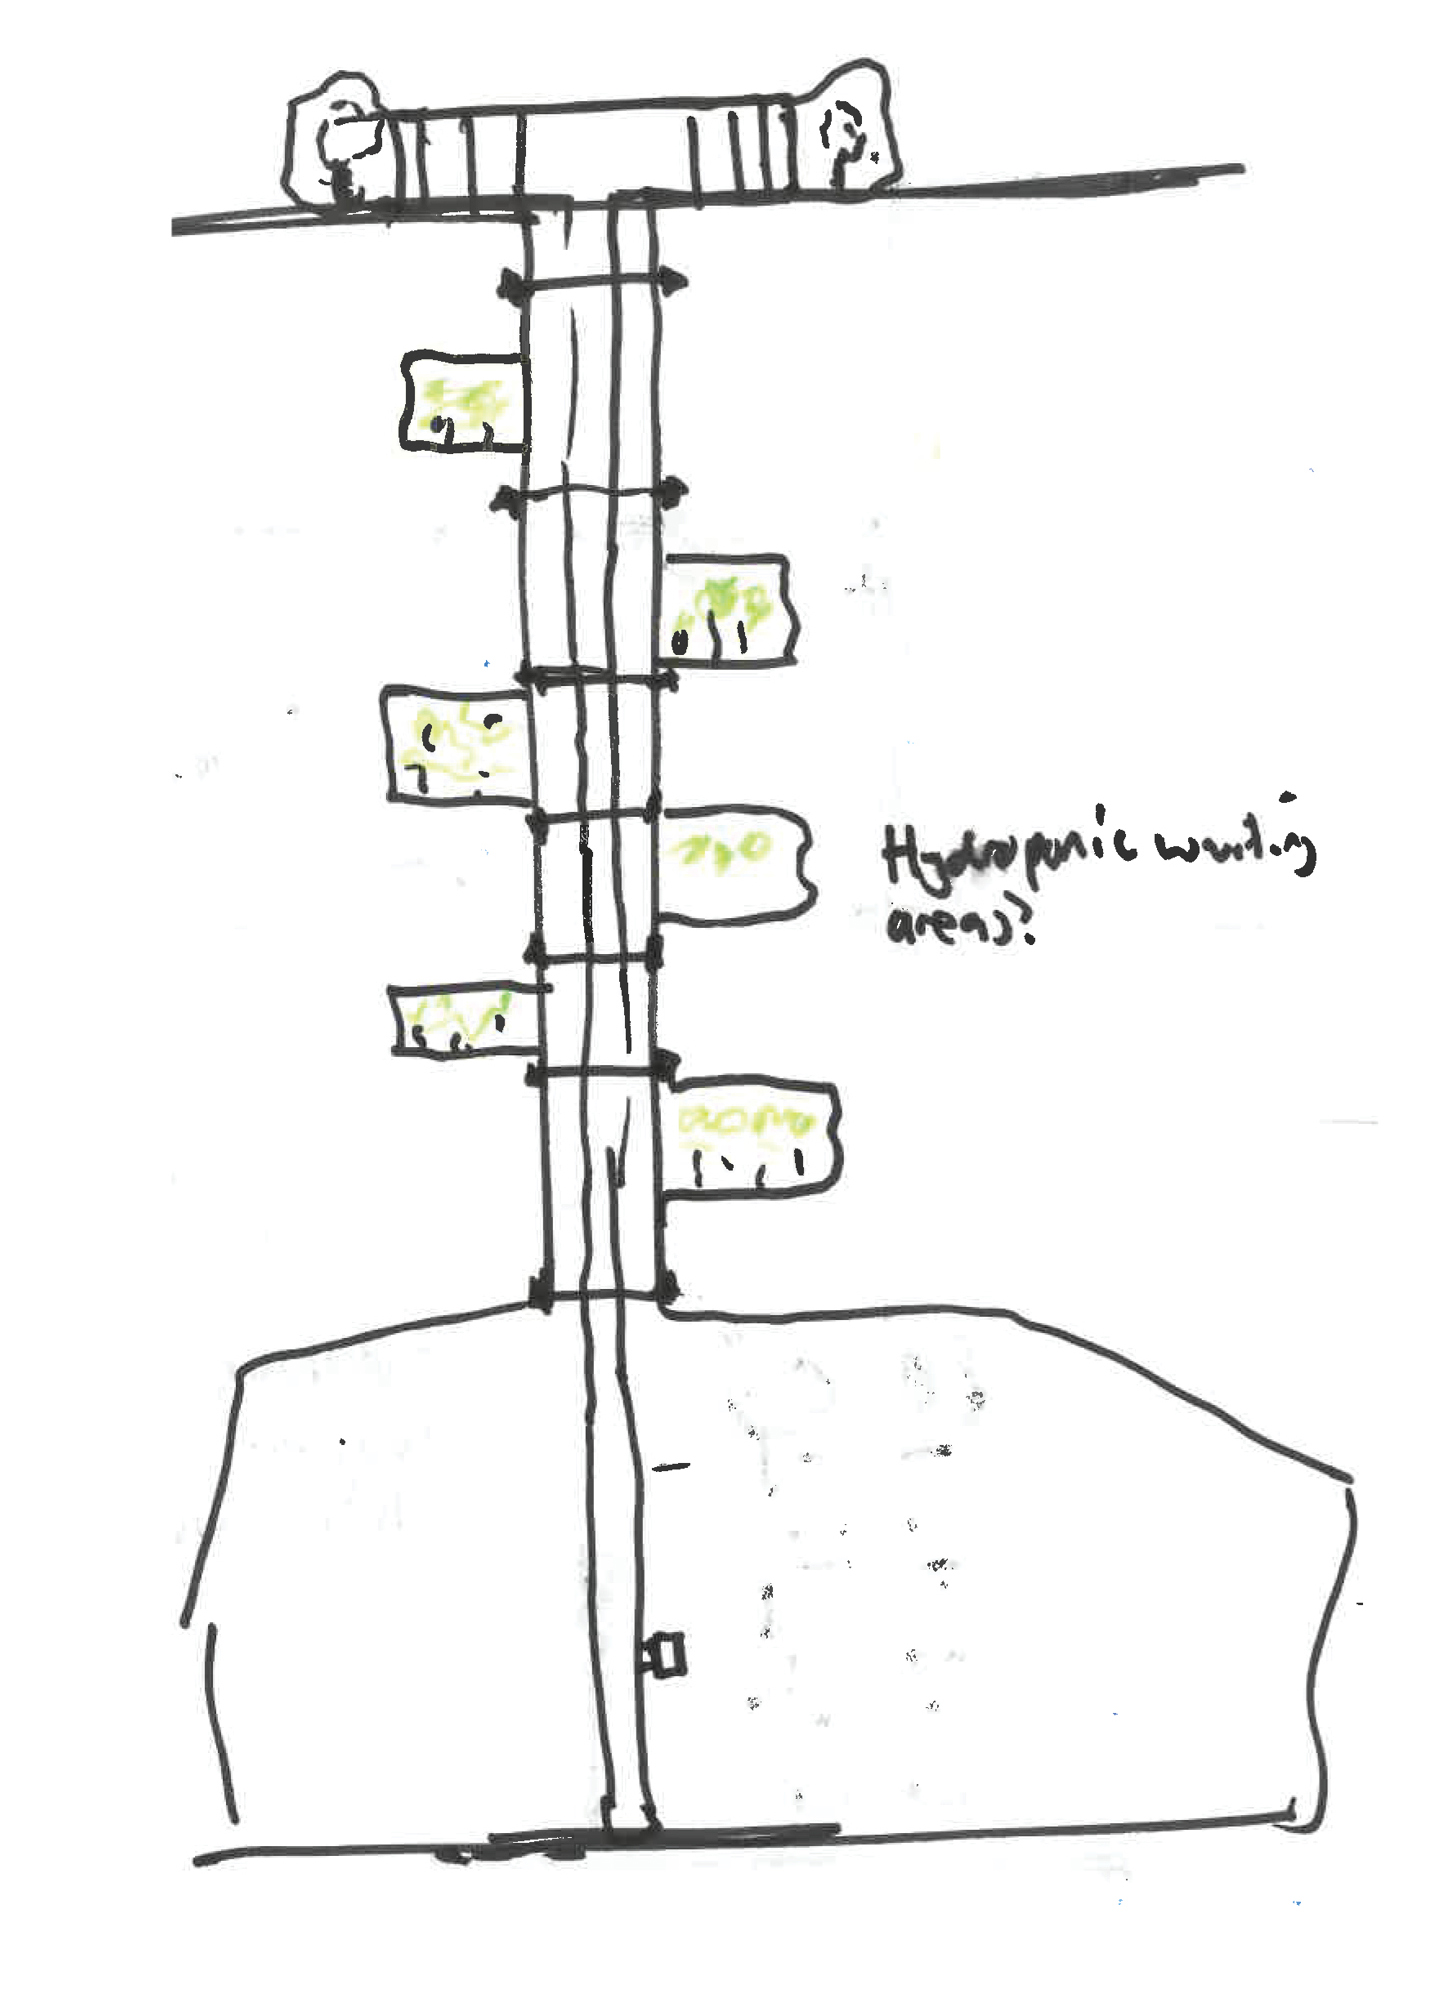 Hydroponic waiting
areas?